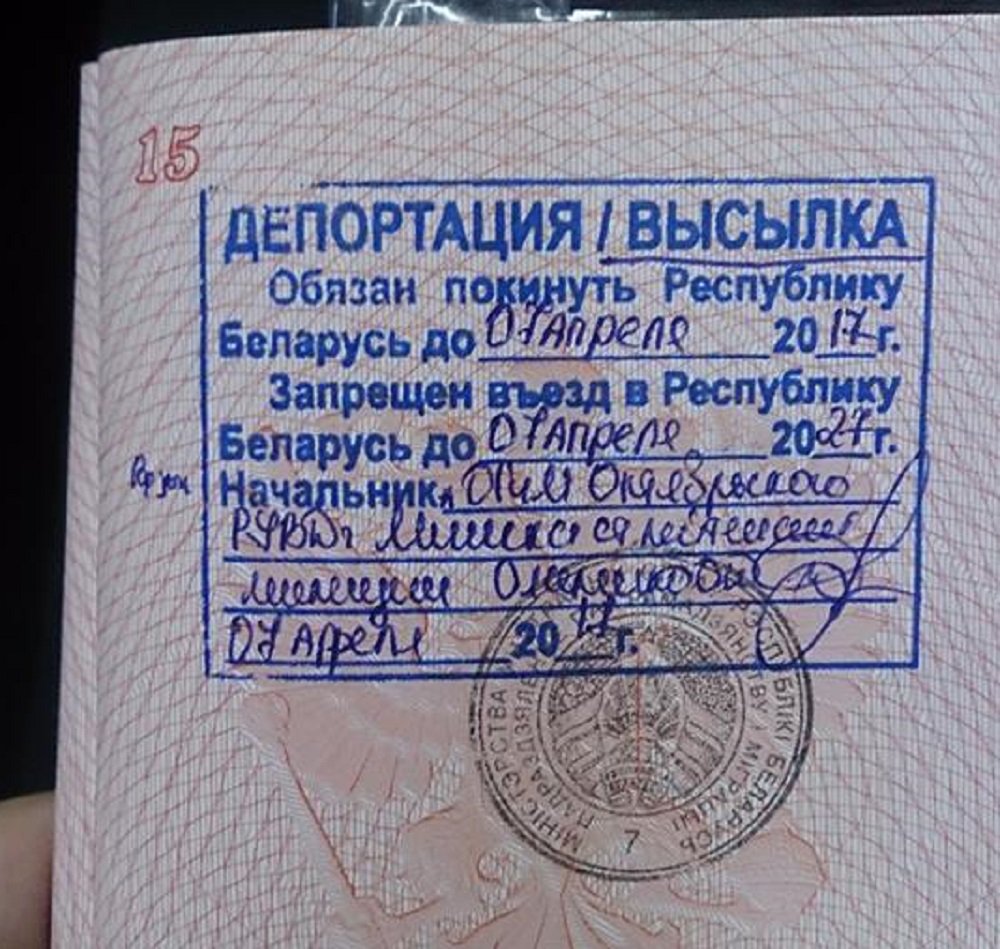 15
ДЕПОРТАЦИЯ / ВЫСЫЛКА
Обязан покинуть Республику
Беларусь до 07 Апреля 2017 г.
Запрещен въезд в Республику
Беларусь до 07 Апреля 2027 г.
Начальник ОГиМ Октябрьского
РУВД г. Минска ст. лейтенант
милиции
07 Апреля 2017 г.
МІНІСТЭРСТВА РЭСПУБЛІКІ БЕЛАРУСЬ
ПАДРАЗДЗЯЛЕННЕ ПА ГРАМАДЗЯНСТВУ І МІГРАЦЫІ
7